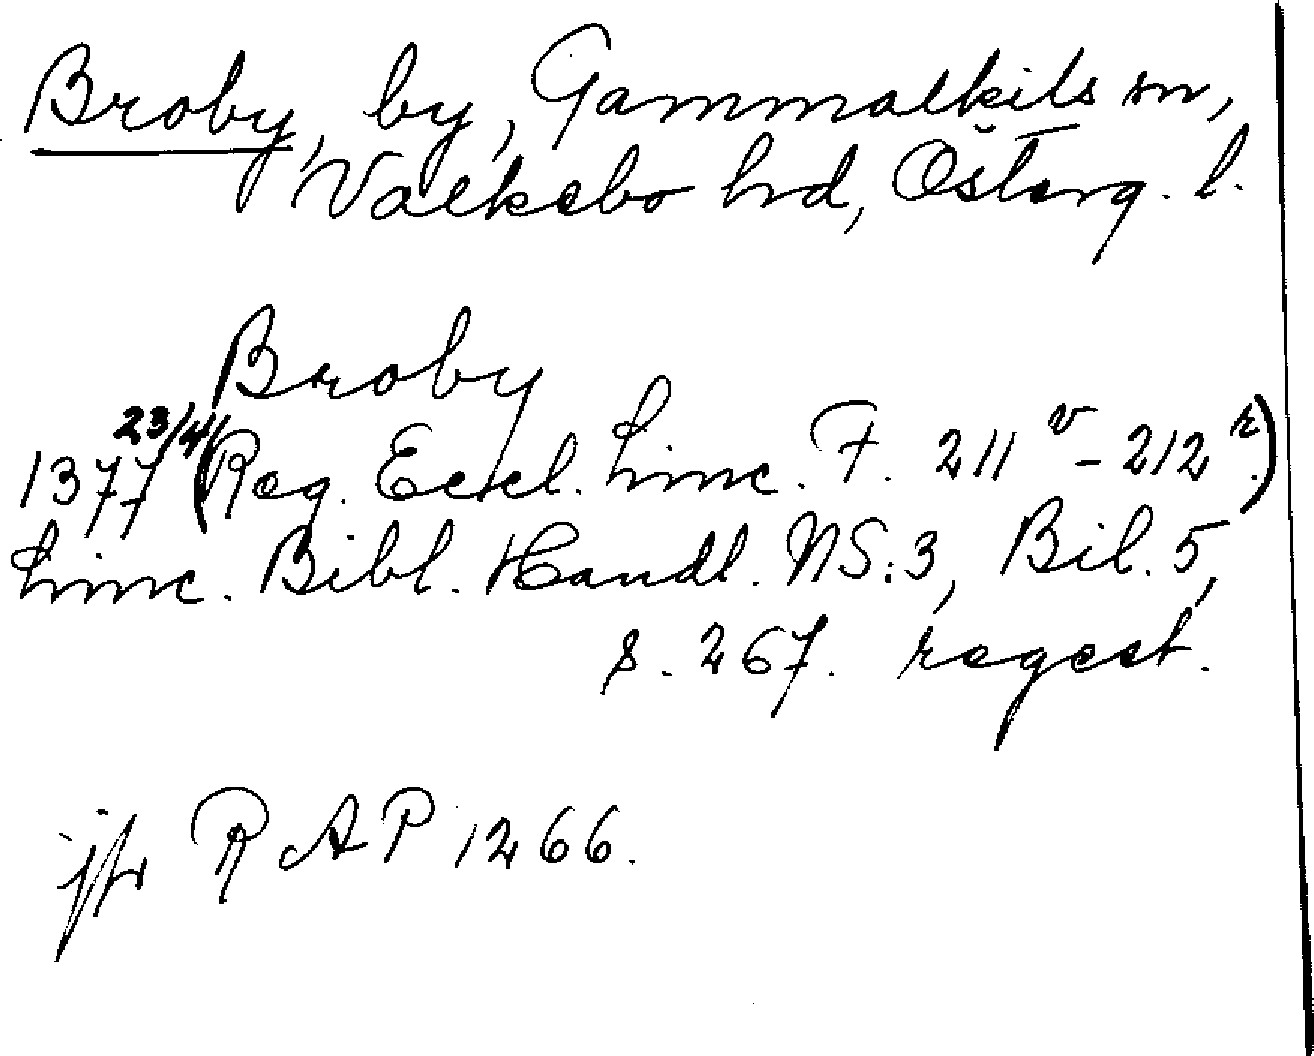 Broby, by, Gammalkils sn,
Valkebo hrd, Österg. l.
Broby
1377 23/4 (Reg. Eccl. Linc. F. 211 v - 212 r.)
Linc. Bibl. Handl. NS:3, Bil. 5,
s. 267. regest.
jfr RAP 1266.